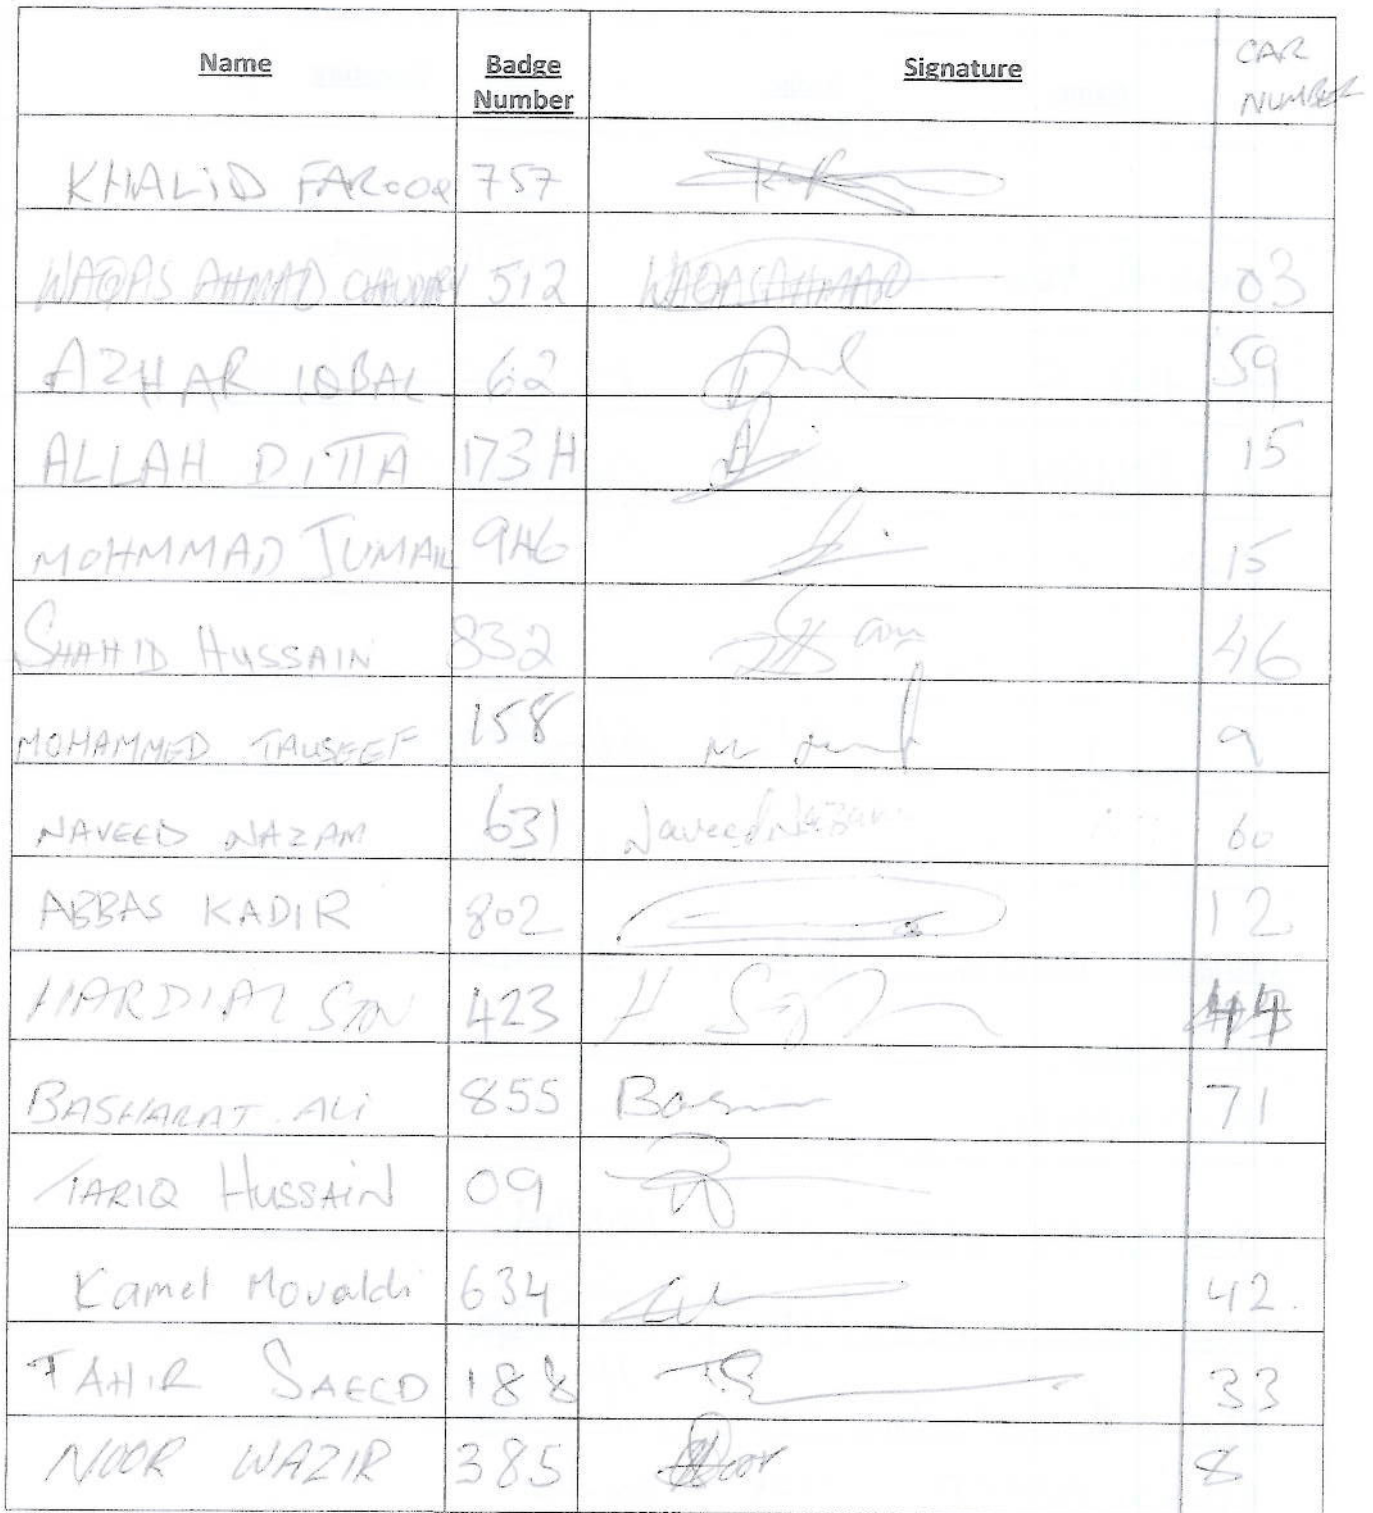 Name Badge Number Signature CAR NUMBER
KHALID FAROOQ 757 KF
WAQAS AHMAD CHAUDHRY 512 WAQAS AHMAD 03
AZHAR IQBAL 62 59
ALLAH DITTA 173H A 15
MOHMMAD JUMAIL 946 15
SHAHID HUSSAIN 832 46
MOHAMMED TAUSEEF 158 9
NAVEED NAZAM 631 Naveed Nazam 60
ABBAS KADIR 802 12
HARDIAL 423 H 44
BASHARAT ALI 855 71
TARIQ HUSSAIN 09
Kamel Movaldi 634 42.
TAHIR SAEED 188 T.S 33
NOOR WAZIR 385 Noor 8